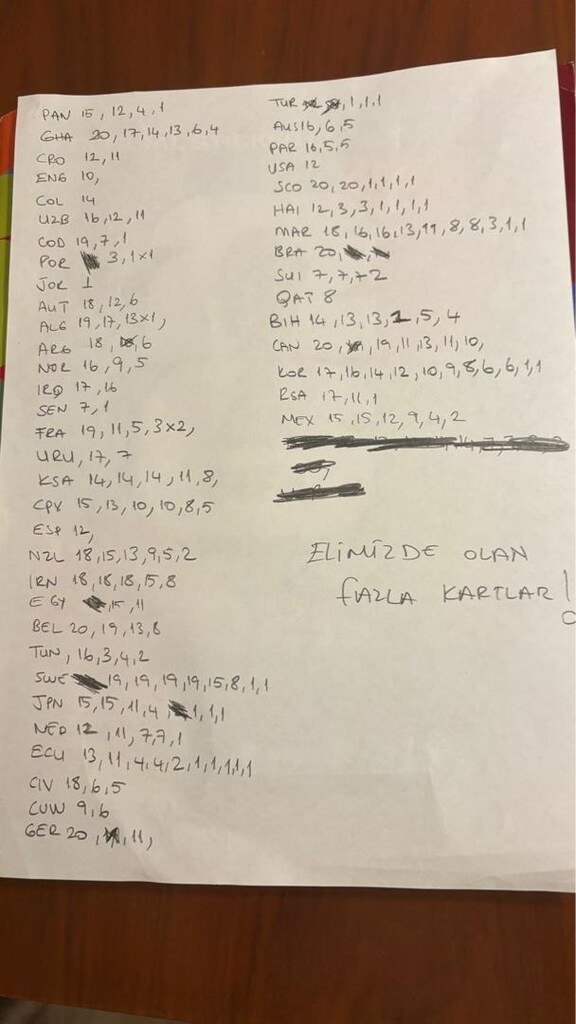 PAN 15, 12, 4, 1
GHA 20, 17, 14, 13, 6, 4
CRO 12, 11
ENG 10,
COL 14
UZB 16, 12, 11
COD 19, 7, 1
POR 3, 1x1
JOR 1
AUT 18, 12, 6
ALG 19, 17, 13x1,
ARG 18, 6
NOR 16, 9, 5
IRQ 17, 16
SEN 7, 1
FRA 19, 11, 5, 3x2,
URU, 17, 7
KSA 14, 14, 14, 11, 8,
CPV 15, 13, 10, 10, 8, 5
ESP 12,
NZL 18, 15, 13, 9, 5, 2
IRN 18, 18, 18, 15, 8
EGY 15, 11
BEL 20, 19, 13, 8
TUN, 16, 3, 4, 2
SWE 19, 19, 19, 19, 15, 8, 1, 1
JPN 15, 15, 11, 4, 1, 1, 1
NED 12, 11, 7, 7, 1
ECU 13, 11, 4, 4, 2, 1, 1, 1, 1, 1
CIV 18, 6, 5
CUW 9, 6
GER 20, 11,
TUR 1, 1, 1
AUS 16, 6, 5
PAR 16, 5, 5
USA 12
SCO 20, 20, 1, 1, 1, 1
HAI 12, 3, 3, 1, 1, 1, 1
MAR 18, 16, 16, 13, 11, 8, 8, 3, 1, 1
BRA 20,
SUI 7, 7, 7, 2
QAT 8
BIH 14, 13, 13, 2, 5, 4
CAN 20, 19, 11, 13, 11, 10,
KOR 17, 16, 14, 12, 10, 9, 8, 6, 6, 1, 1
RSA 17, 11, 1
MEX 15, 15, 12, 9, 4, 2
ELİMİZDE OLAN
FAZLA KARTLAR!